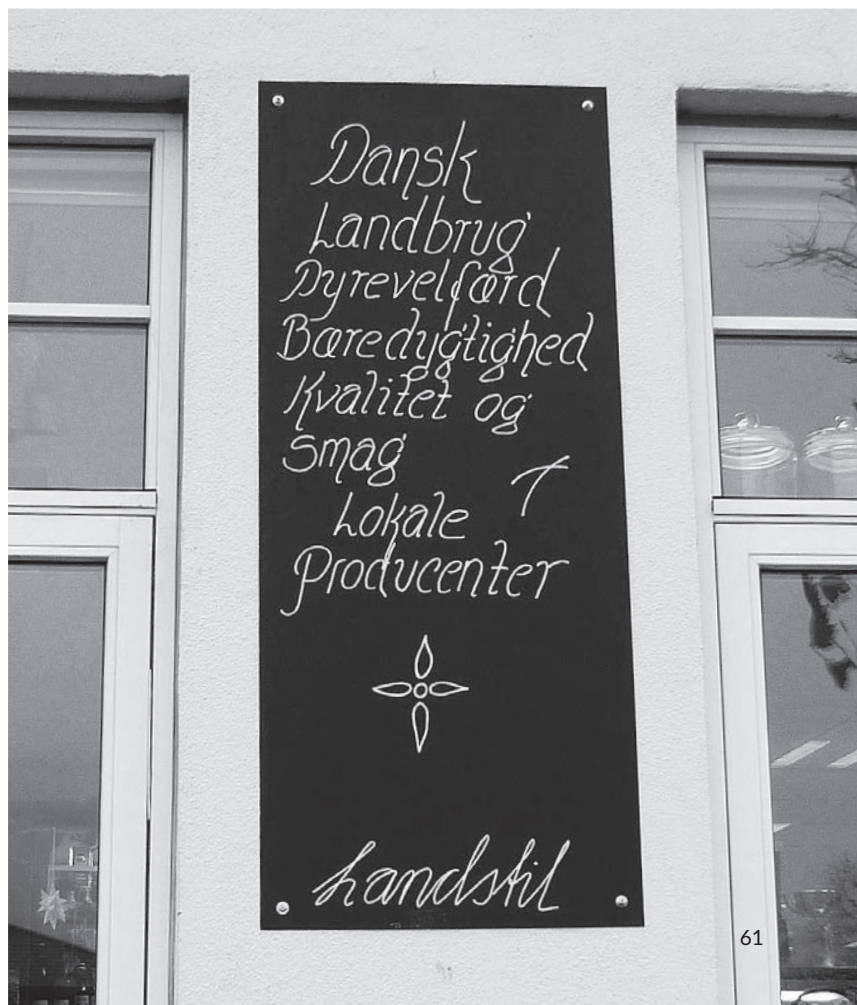 Dansk
Landbrug
Dyrevelfærd
Bæredygtighed
Kvalitet og
Smag
Lokale
Producenter
Landstil
61